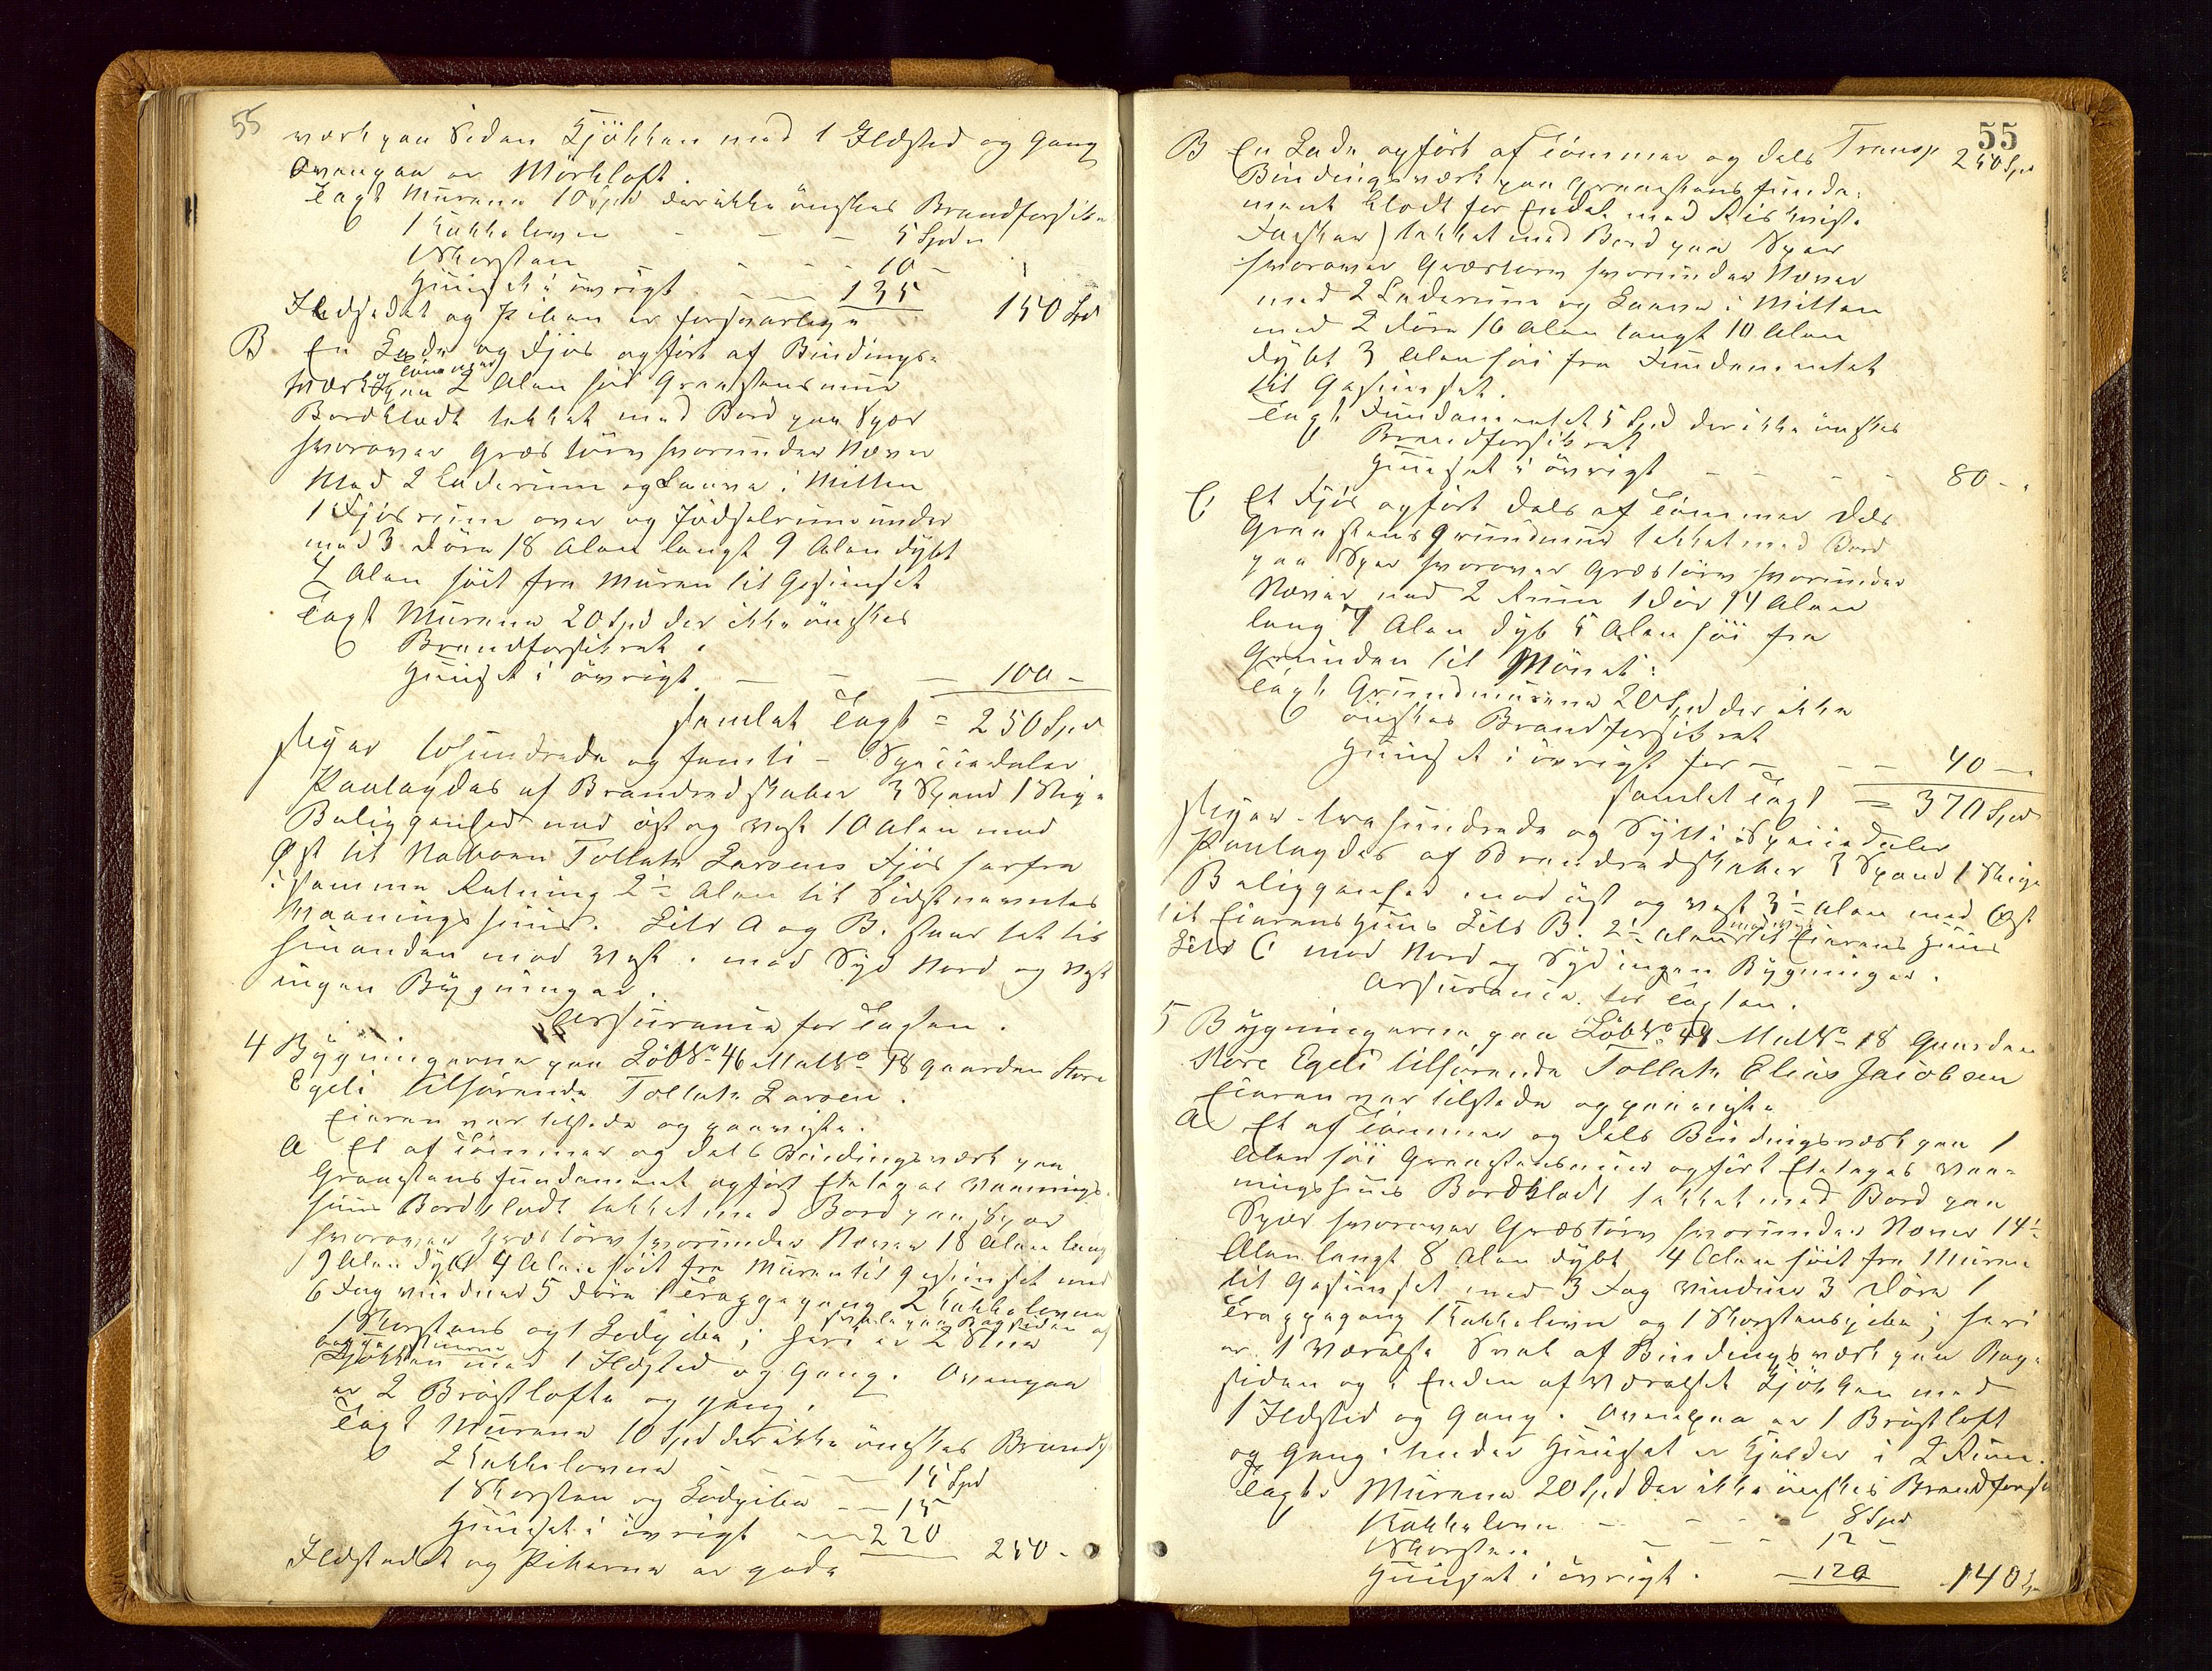 55
værk paa Siden Kjøkken med 1 Ildsted og Gang
Ovenpaa er Mørkloft.
Taxt Murene 10 Spd der ikke ønskes Brandforsik-
1 Kakkelovn - - - 5 Spdr
1 Skorsten - - - 10 -
Huuset i øvrigt - - 135
Ildstedet og Piben er forsvarlige 150 Spd
B. En Lade og Fjøs opført af Bindings-
og Tømmer
værk paa 2 Alen høi Graastensmuur
Bordklædt tækket med Bord paa Spær
hvorover Græstørv hvorunder Næver
Med 2 Laderum og Laave i Mitten
1 Fjøsrum over og Gjødselrum under
med 3 Døre 18 Alen langt 9 Alen dybt
4 Alen høit fra Muren til Gesimset
Taxt Murene 20 Spd der ikke ønskes
Brandforsikret.
Huuset i øvrigt. - - - 100 -
samlet Taxt = 250 Spd
siger tohundrede og femti - Speciedaler
Paalagdes af Brandredskaber 3 Spand 1 Stige
Beliggenhed mod øst og vest 10 Alen mod
Øst til Naboen Tollak Larsens Fjøs herfra
i samme Retning 2½ Alen til Sidstnævntes
Vaaningshuus. Litr A og B. staar tæt til
hinanden mod Vest. mod Syd Nord og Vest
ingen Bygninger.
Assurance for Taxten.
4 Bygningerne paa LøbNo 46 MatNo 18 gaarden Store
Egeli tilhørende Tollak Larsen.
Eieren var tilstede og paaviste.
A Et af Tømmer og dels Bindingsværk paa
Graastensfundament opført Etetages Vaanings-
huus Bordklædt tækket med Bord paa Spær
hvorover Græstørv hvorunder Næver 18 Alen lang
9 Alen dybt 4 Alen høit fra Muren til Gesimset med
6 Fag vinduer 5 Døre 1 Trappegang 2 Kakkelovne
1 Skorstens og 1 Lodpibe; heri er 2 Stuer
Svale paa Bagsiden af
begge Stuerne
Kjøkken med 1 Ildsted og Gang. Ovenpaa
er 2 Brøstlofte og gang.
Taxt Murene 10 Spd der ikke ønskes Brandf
2 Kakkelovne - - - 15 Spd
1 Skorsten og Lodpibe - - 15
Huuset i øvrigt - - 220
Ildstedet og Piberne er gode 250 -
55
Transp 250 Spd
B En Lade opført af Tømmer og dels
Bindingsværk paa Graastens funda-
ment klædt for Endel med Riskvist-
tækket med Bord paa Spær
hvorover Græstørv hvorunder Næver
med 2 Laderum og Laave i Mitten
med 2 Døre 16 Alen langt 10 Alen
dybt 3 Alen høi fra Fundamentet
til Gesimset.
Taxt Fundamentet 5 Spd der ikke ønskes
Brandforsikret
Huuset i øvrigt - - - - 80 -
C Et Fjøs opført dels af Tømmer dels
Graastens Grundmuur tækket med Bord
paa Spær hvorover Græstørv hvorunder
Næver med 2 Rum 1 Dør 14 Alen
lang 7 Alen dyb 5 Alen høi fra
Grunden til Mønet.
Taxt Grundmurene 20 Spd der ikke
ønskes Brandforsikret
Huuset i øvrigt for - - - 40 -
samlet Taxt = 370 Spd
siger trehundrede og Sytti Speciedaler
Paalagdes af Brandredskaber 3 Spand 1 Stige
Beliggenhed mod øst og vest 3½ Alen mod Øst
til Eierens Huus Litr B. 2½ Alen til Eierens Huus
mod Vest
Litr C mod Nord og Syd ingen Bygninger.
Assurance for Taxten.
5 Bygningerne paa LøbNo 49 MatNo 18 Gaarden
Store Egeli tilhørende Tollak Elias Jacobsen
Eieren var tilstede og paaviste
A Et af Tømmer og dels Bindingsværk paa 1
Alen høi Graastensmuur opført Etetages Vaa-
ningshuus Bordklædt tækket med Bord paa
Spær hvorover Græstørv hvorunder Næver 14½
Alen langt 8 Alen dybt 4 Alen høit fra Muren
til Gesimset med 3 Fag Vinduer 3 Døre 1
Trappegang 1 Kakkelovn og 1 Skorstenspibe; heri
er 1 Værelse Sval af Bindingsværk paa Bag-
siden og i Enden af Værelset Kjøkken med
1 Ildsted og Gang. Ovenpaa er 1 Brøstloft
og Gang. under Huuset er Kjelder i 2 Rum.
Taxt. Murene 20 Spd der ikke ønskes Brandforsi
1 Kakkelovn - - - - 8 Spd
1 Skorsten - - - 12 -
Huuset i øvrigt. - 120 140 Sp